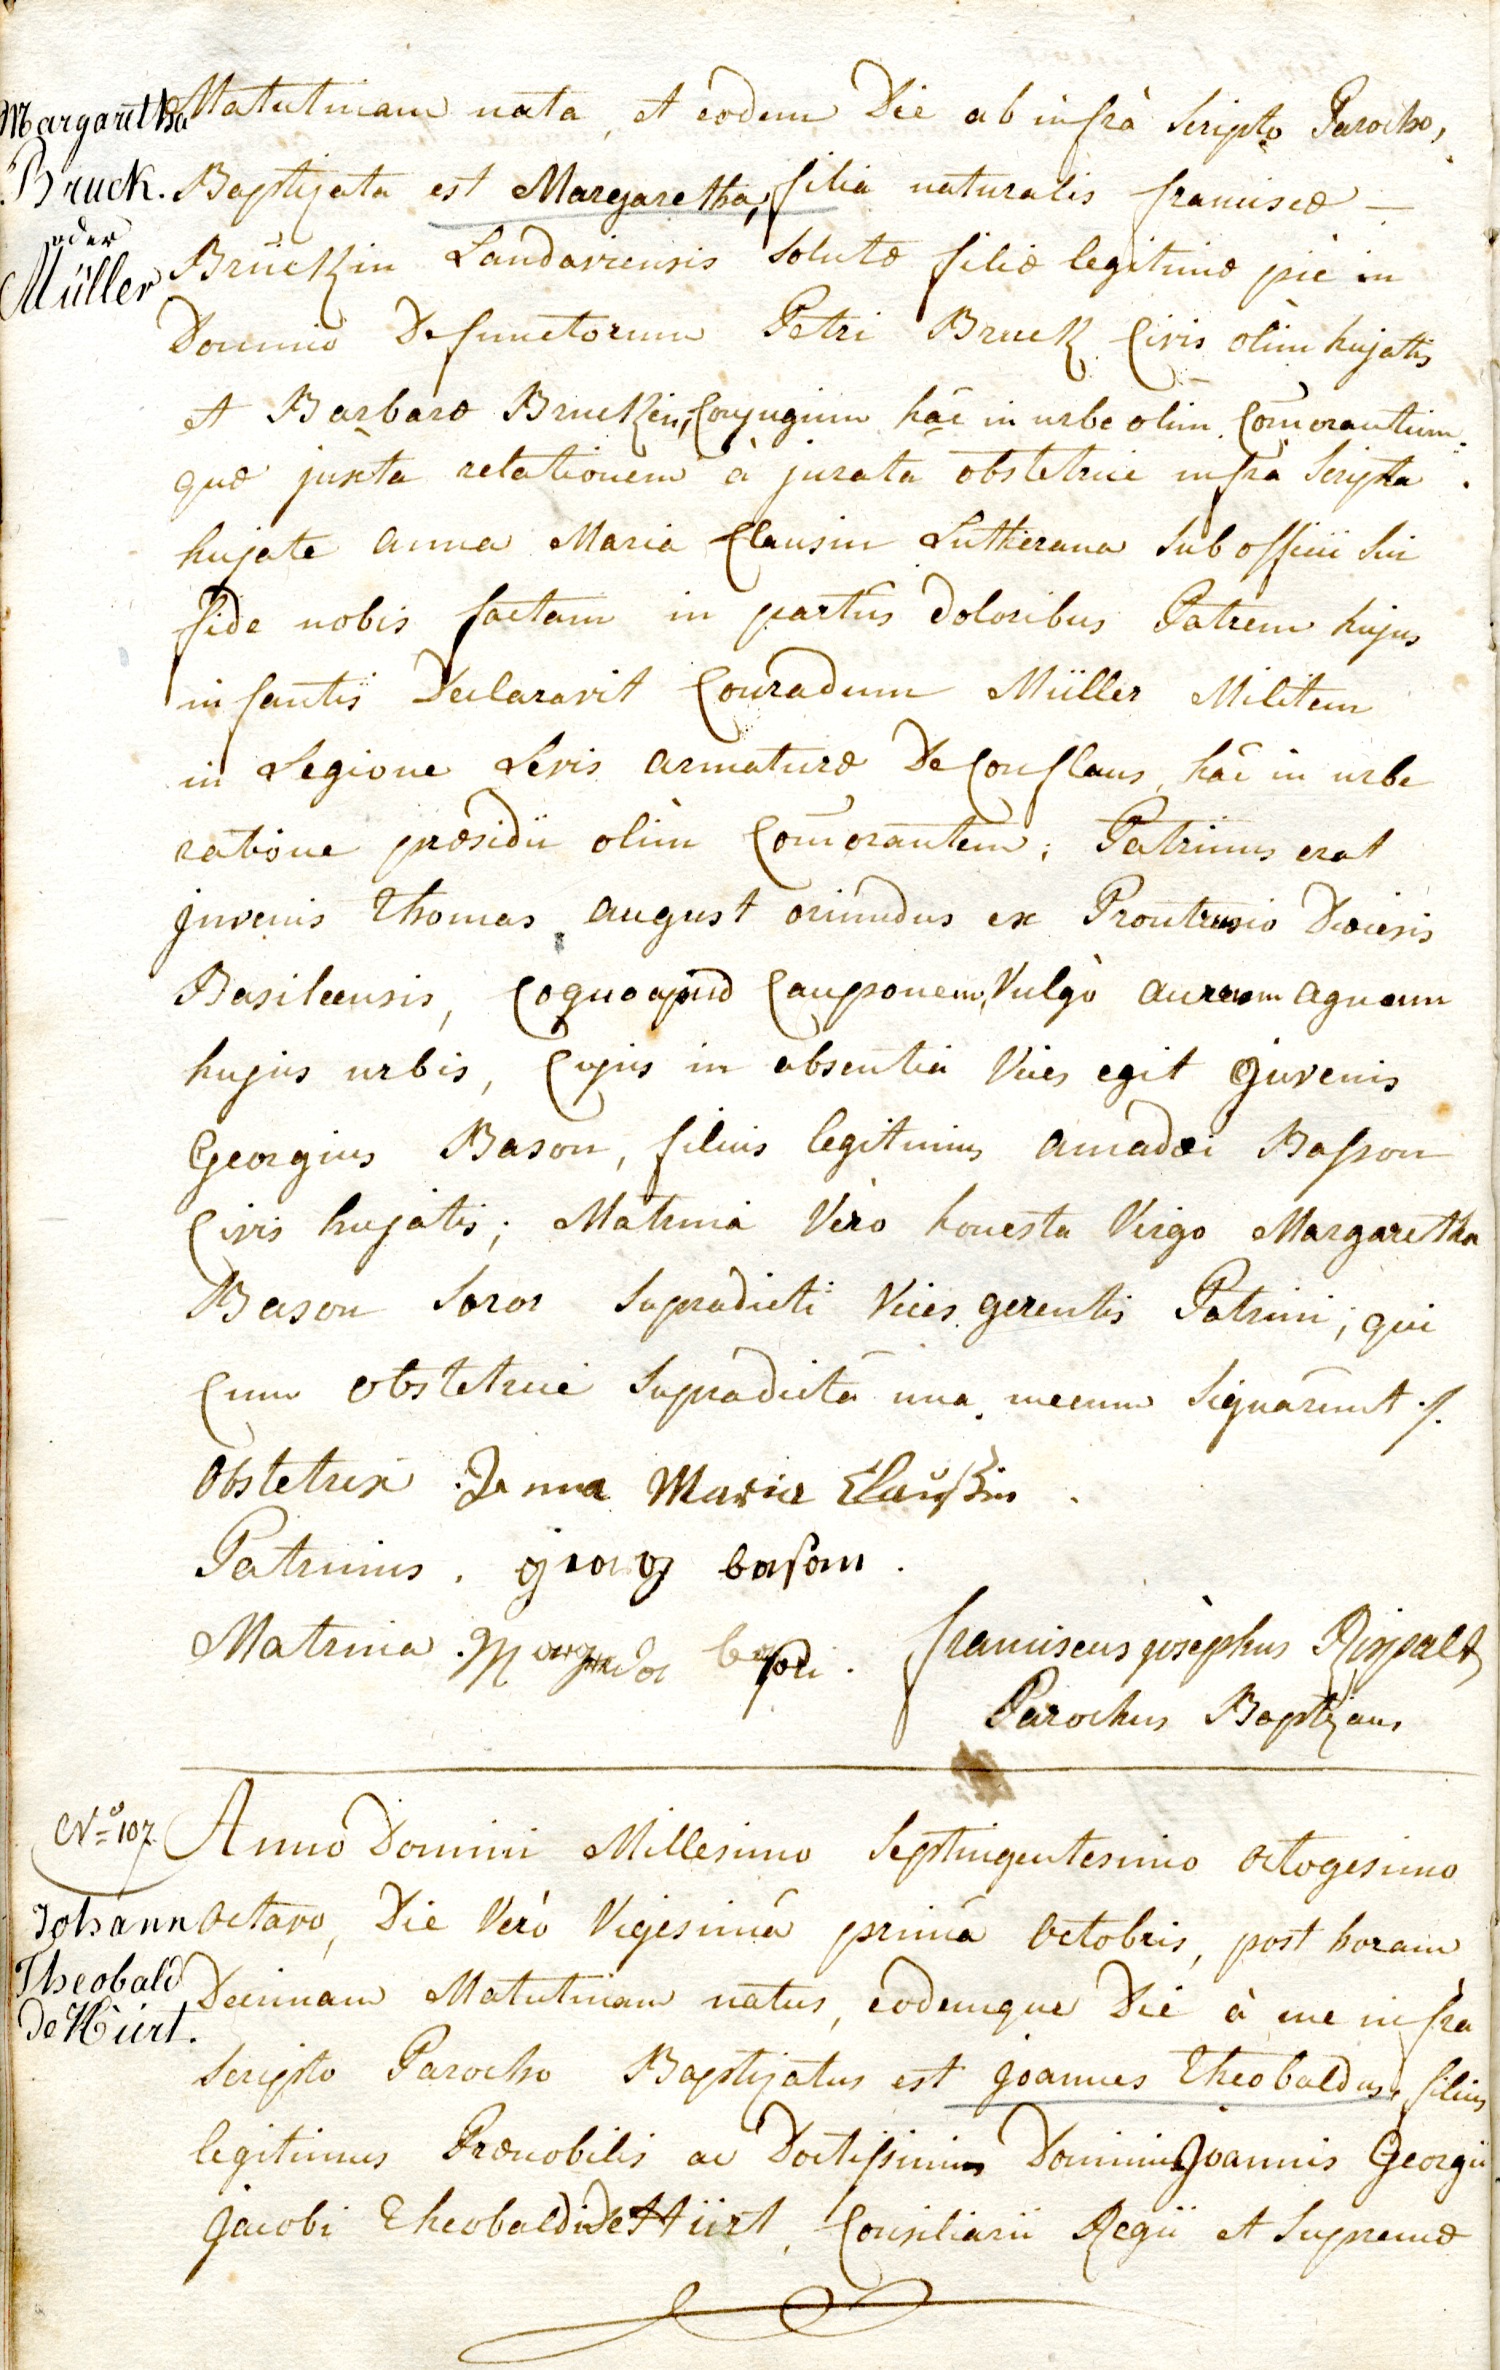 Margaretha
Bruck.
oder
Müller
Matutinam nata, et eodem Die ab infrà Scripto Parocho,
Baptizata est Margaretha, filia naturalis franciscæ —
Brückin Landaviensis solutæ filiæ legitimæ piè in
Domino Defunctorum Petri Bruck Civis olim hujatis
et Barbaræ Bruckin, Conjugum hâc in urbe olim Com̃orantium.
quæ juxta relationem à jurata obstetrice infrà Scripta
hujate anna Maria Clausin Lutherana sub officii sui
fide nobis factam in partûs doloribus Patrem hujus
infantis Declaravit Conradum Müller Militem
in Legione Levis armaturæ De Conflans, hâc in urbe
ratione præsidii olim Com̃orantem; Patrinus erat
juvenis Thomas august oriundus ex Prontrusio Diœcesis
Basileensis, Coquo apud Cauponem, Vulgò aureum agnum
hujus urbis, Cujus in absentia Vices egit juvenis
Georgius Bason, filius legitimus amadæi Basson
Civis hujatis; Matrina Verò honesta Virgo Margaretha
Bason soror supradicti Vices gerentis Patrini; qui
Cum obstetrice supradictâ unà mecum signârunt ./.
Obstetrix. Anna Maria Claußin.
Patrinus. georg bason.
Matrina. Margreda bason.
franciscus josèphus Rispalt
Parochus Baptizans
No 107.
Johann
Theobald
de Hürt.
Anno Domini Millesimo Septingentesimo octogesimo
octavo, Die Verò Vigesimâ primâ octobris, post horam
Decimam Matutinam natus, eodemque Die à me infrà
Scripto Parocho Baptizatus est joannes Theobaldus, filius
legitimus Prænobilis ac Doctissimi Domini Joannis Georgii
Jacobi Theobaldi de Hürt, Consiliarii Regii et Supremæ